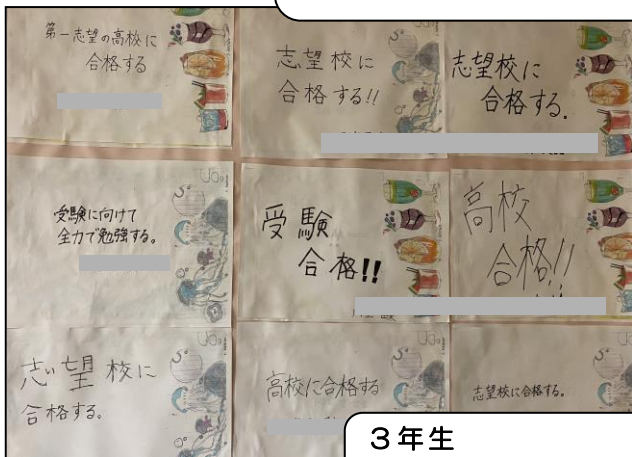 第一志望の高校に
合格する
志望校に
合格する!!
志望校に
合格する.
受験に向けて
全力で勉強する。
受験
合格!!
高校
合格!!
志望校に
合格する。
高校に合格する
志望校に合格する。
3年生